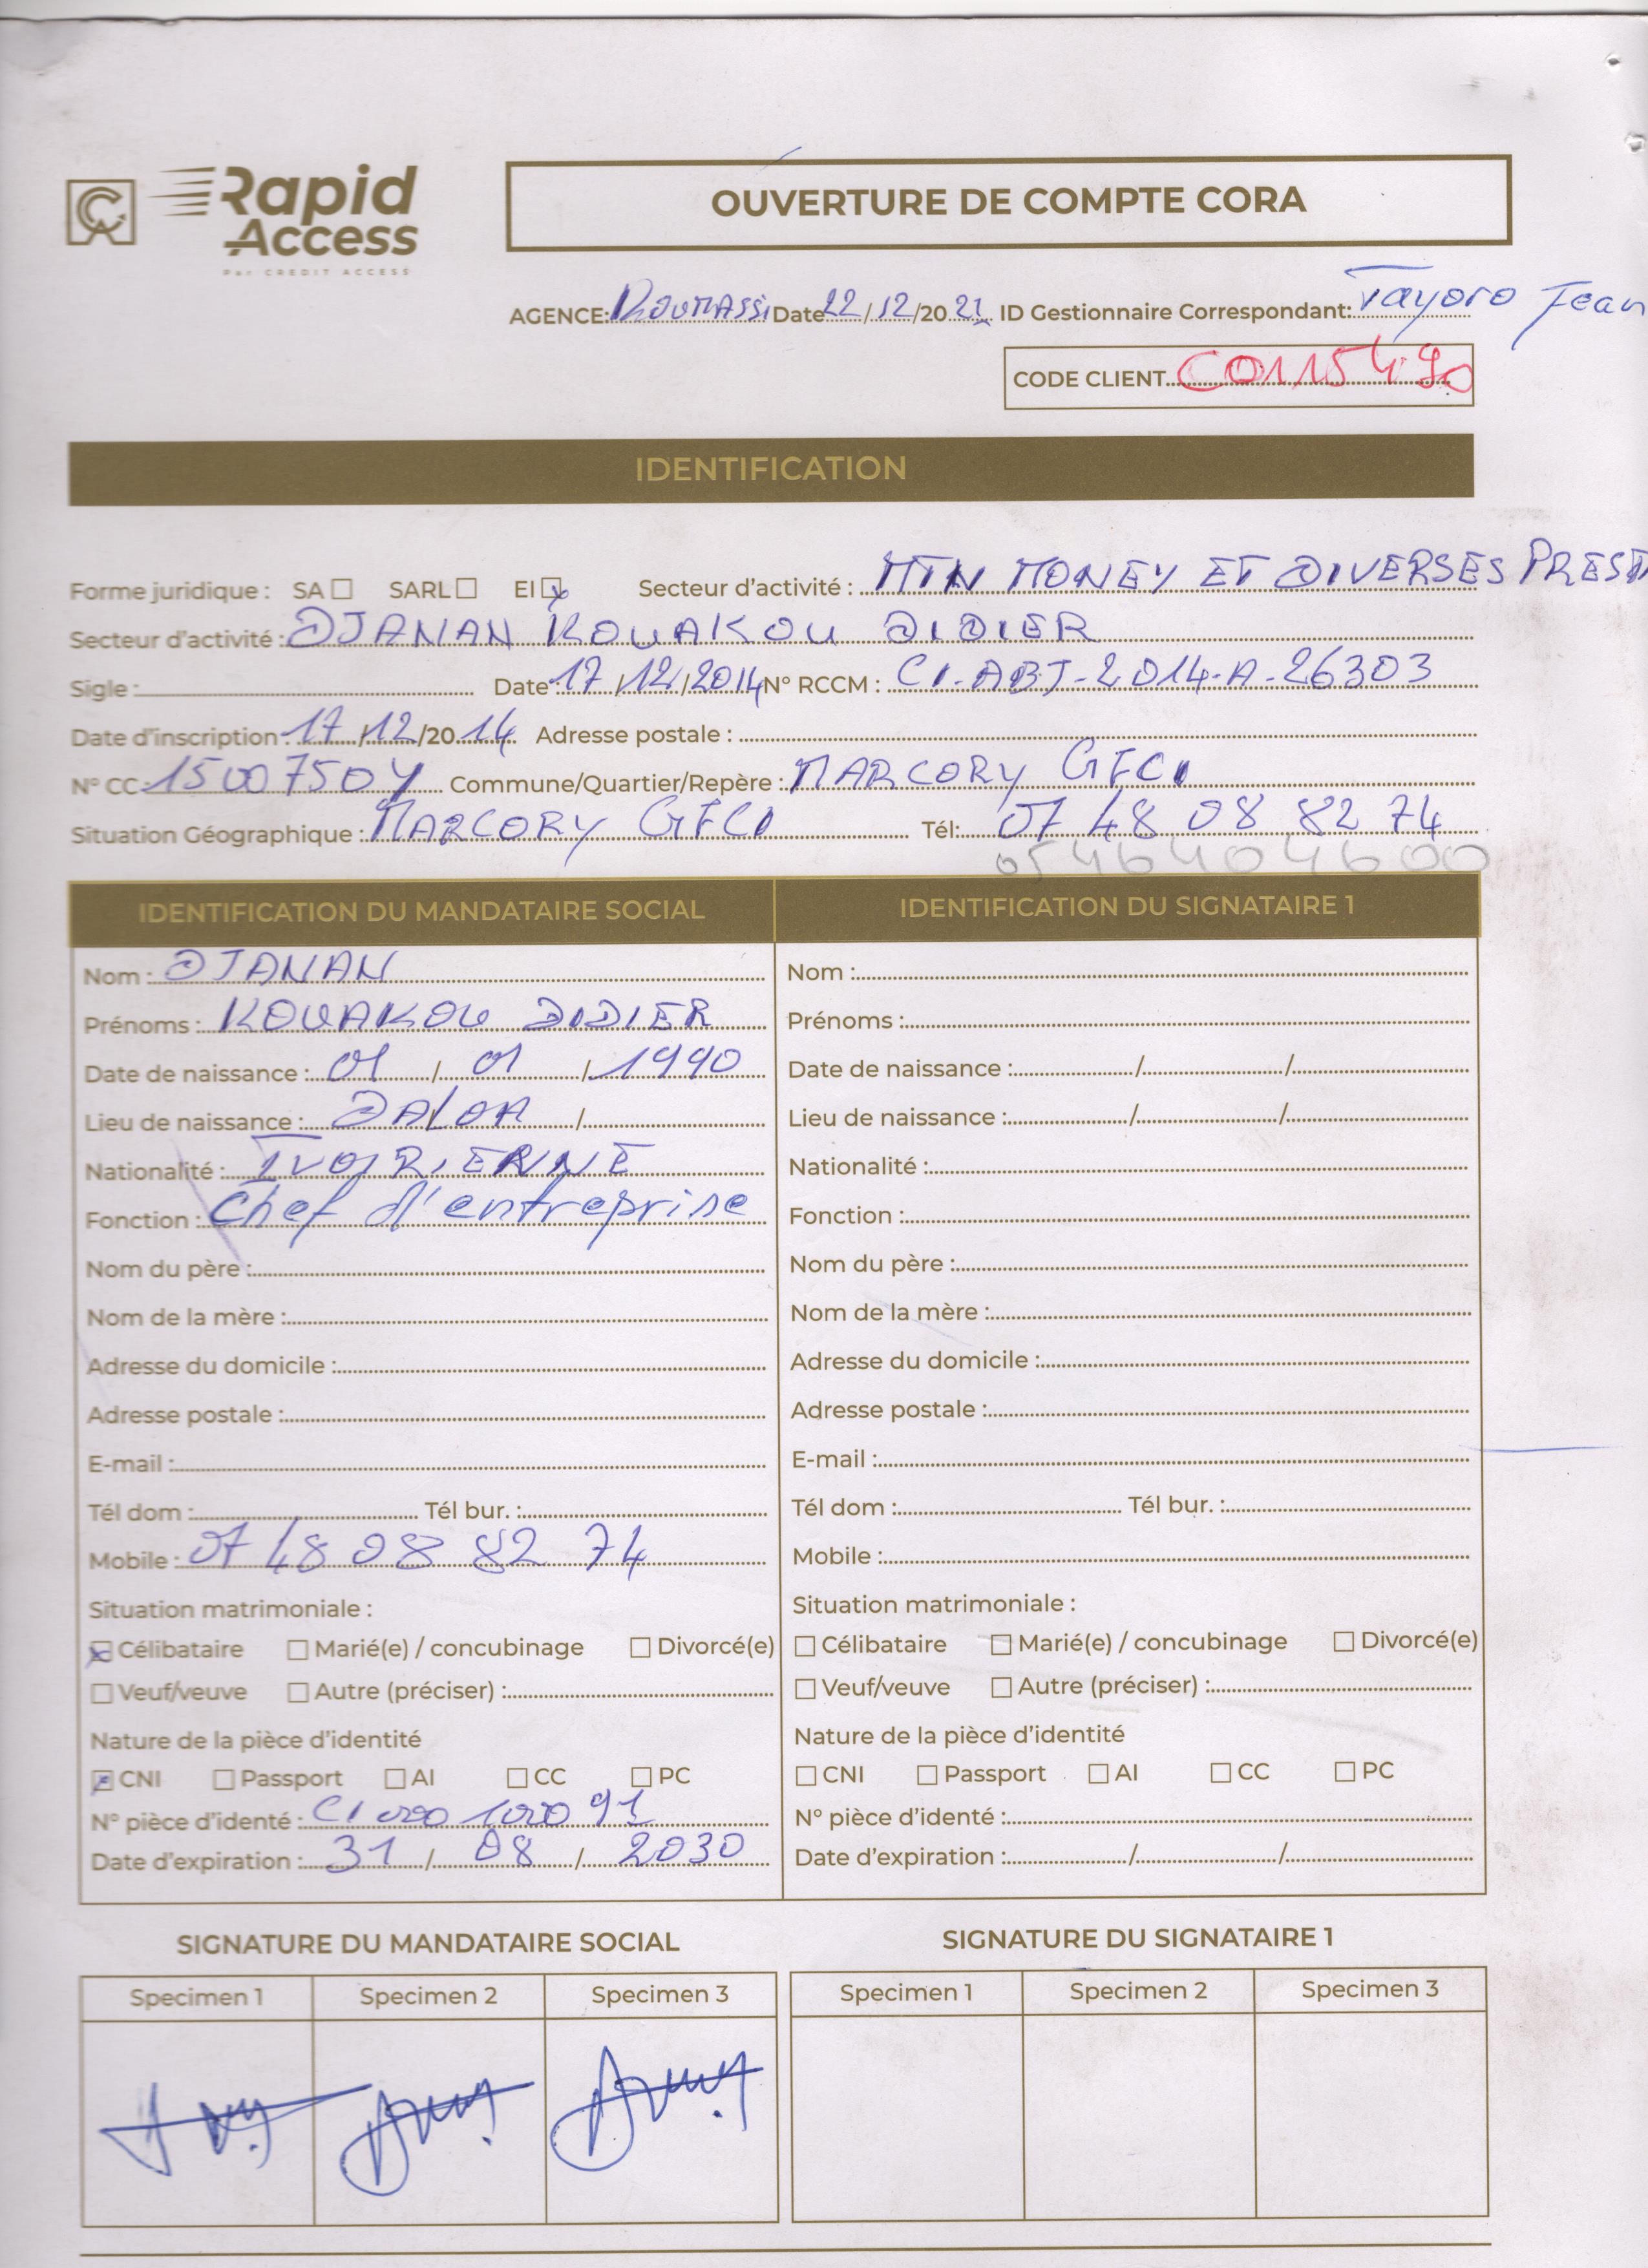 Rapid
Access
Par CREDIT ACCESS
OUVERTURE DE COMPTE CORA
AGENCE: KOUMASSI Date 22/12/2021 ID Gestionnaire Correspondant: Tayoro Jean
CODE CLIENT C0115490
IDENTIFICATION
Forme juridique : SA SARL EI Secteur d'activité : MTN MONEY ET DIVERSES PREST
Secteur d'activité : DJANAN KOUAKOU DIDIER
Sigle : Date 17/12/2014 N° RCCM : CI-ABJ-2014-A-26303
Date d'inscription : 17/12/2014 Adresse postale :
N° CC 1500750Y Commune/Quartier/Repère : MARCORY GFCI
Situation Géographique : MARCORY GFCI Tél: 07 48 08 82 74
0546404600
IDENTIFICATION DU MANDATAIRE SOCIAL
Nom : DJANAN
Prénoms : KOUAKOU DIDIER
Date de naissance : 01 / 01 / 1990
Lieu de naissance : DALOA /
Nationalité : IVOIRIENNE
Fonction : Chef d'entreprise
Nom du père :
Nom de la mère :
Adresse du domicile :
Adresse postale :
E-mail :
Tél dom : Tél bur. :
Mobile : 07 48 08 82 74
Situation matrimoniale :
Célibataire Marié(e) / concubinage Divorcé(e)
Veuf/veuve Autre (préciser) :
Nature de la pièce d'identité
CNI Passport AI CC PC
N° pièce d'identé : CI 000 1000 91
Date d'expiration : 31 / 08 / 2030
IDENTIFICATION DU SIGNATAIRE 1
Nom :
Prénoms :
Date de naissance : / /
Lieu de naissance : / /
Nationalité :
Fonction :
Nom du père :
Nom de la mère :
Adresse du domicile :
Adresse postale :
E-mail :
Tél dom : Tél bur. :
Mobile :
Situation matrimoniale :
Célibataire Marié(e) / concubinage Divorcé(e)
Veuf/veuve Autre (préciser) :
Nature de la pièce d'identité
CNI Passport AI CC PC
N° pièce d'identé :
Date d'expiration : / /
SIGNATURE DU MANDATAIRE SOCIAL
Specimen 1 Specimen 2 Specimen 3
SIGNATURE DU SIGNATAIRE 1
Specimen 1 Specimen 2 Specimen 3